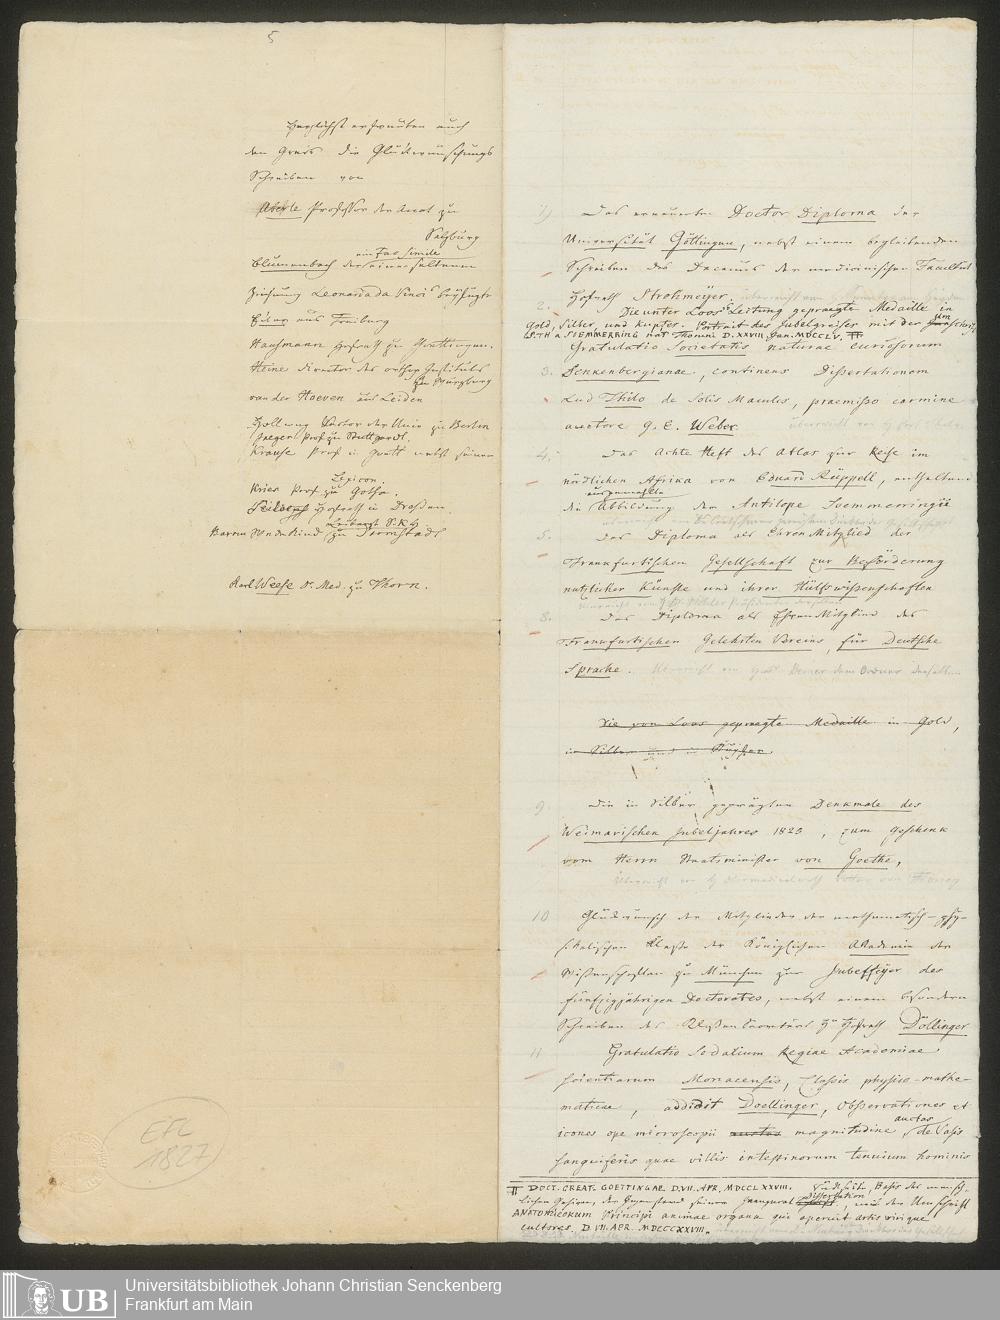 5
Herzlichst erfreuten auch
den Greis die Glückwünschungs
Schreiben von
Aberle Professor der Anat zu
Salzburg
ein Fac simile
Blumenbach der seiner seltenen
Ziehung Leonarda da Vinci beyfügte
aus Freiburg
Hausmann Hofrath zu Goettingen.
Heine Director des orthop Instituts
zu Würzburg
van der Hoeven aus Leiden
Hollweg Rector der Univ zu Berlin
Jaeger Prof zu Stuttgardt.
Krause Prof in Goett nebst seinem
Lexicon
Kries Prof zu Gotha.
Hofrath in Dresden
Leibarzt S.K.H
Baron Wedekind zu Darmstadt
Karl Weese Dr. Med. zu Thorn.
EFL
1827
1) Das erneuerte Doctor Diploma der
Universität Göttingen, nebst einem begleitenden
Schreiben des Decanus der medicinischen Facultät
Hofrath Strohmeyer.
2. Die unter Loos's Leitung gepraegte Medaille in
Gold, Silber, und Kupfer. Portrait des Jubelgreises mit der Umschrift
S. TH a SOEMMERRING nat Thoruni D. XXVIII. Jan. MDCCLV. ╥
Gratulatio Societatis naturae curiosorum
3. Senkenbergianae, continens Dissertationem
Lud Thilo de Solis Maculis, praemisso carmine
auctore G. E. Weber.
4. Das Achte Heft des Atlas zur Reise im
nördlichen Afrika von Eduard Rüppell, enthaltend
die ausgemahlte Abbildung der Antilope Soemmerringii
5. Das Diplom als Ehren Mitglied der
Frankfurtischen Gesellschaft zur Beförderung
nützlicher Künste und ihrer Hülfswissenschaften
8. Das Diploma als Ehren Mitglied des
Frankfurtischen Gelehrten Vereins, für Deutsche
Sprache.
Die von Loos gepraegte Medaille in Gold,
in Silber und in Kupfer.
9. Die in Silber geprägten Denkmale des
Weimarischen Jubeljahres 1825, zum Geschenk
vom Herrn Staatsminister von Goethe,
10 Glückwünsch der Mitglieder der mathematisch-phy-
sikalischen Klasse der Königlichen Akademie der
Wissenschaften zu München zur Jubelfeyer des
fünfzigjährigen Doctorates, nebst einem besondern
Schreiben des Klassen Secretärs Hn Hofrath Döllinger
11 Gratulatio Sodalium Regiae Academiae
scientiarum Monacensis, Classis physico-mathe-
maticae, addidit Doellinger, Observationes et
icones ope microscopii auctas magnitudine auctas, de Vasis
sanguiferis quae villis intestinorum tenuium hominis
╥ DOCT. CREAT. GOETTINGAE D. VII. APR. MDCCLXXVIII. Rückseite Basis des mensch
lichen Gehirns, der Gegenstand seiner Inaugural dissertation, mit der Umschrift
ANATOMICORUM Principi animae organa qui aperuit artis virique
cultores. D. VII. APR. MDCCCXXVIII.
UB
Universitätsbibliothek Johann Christian Senckenberg
Frankfurt am Main